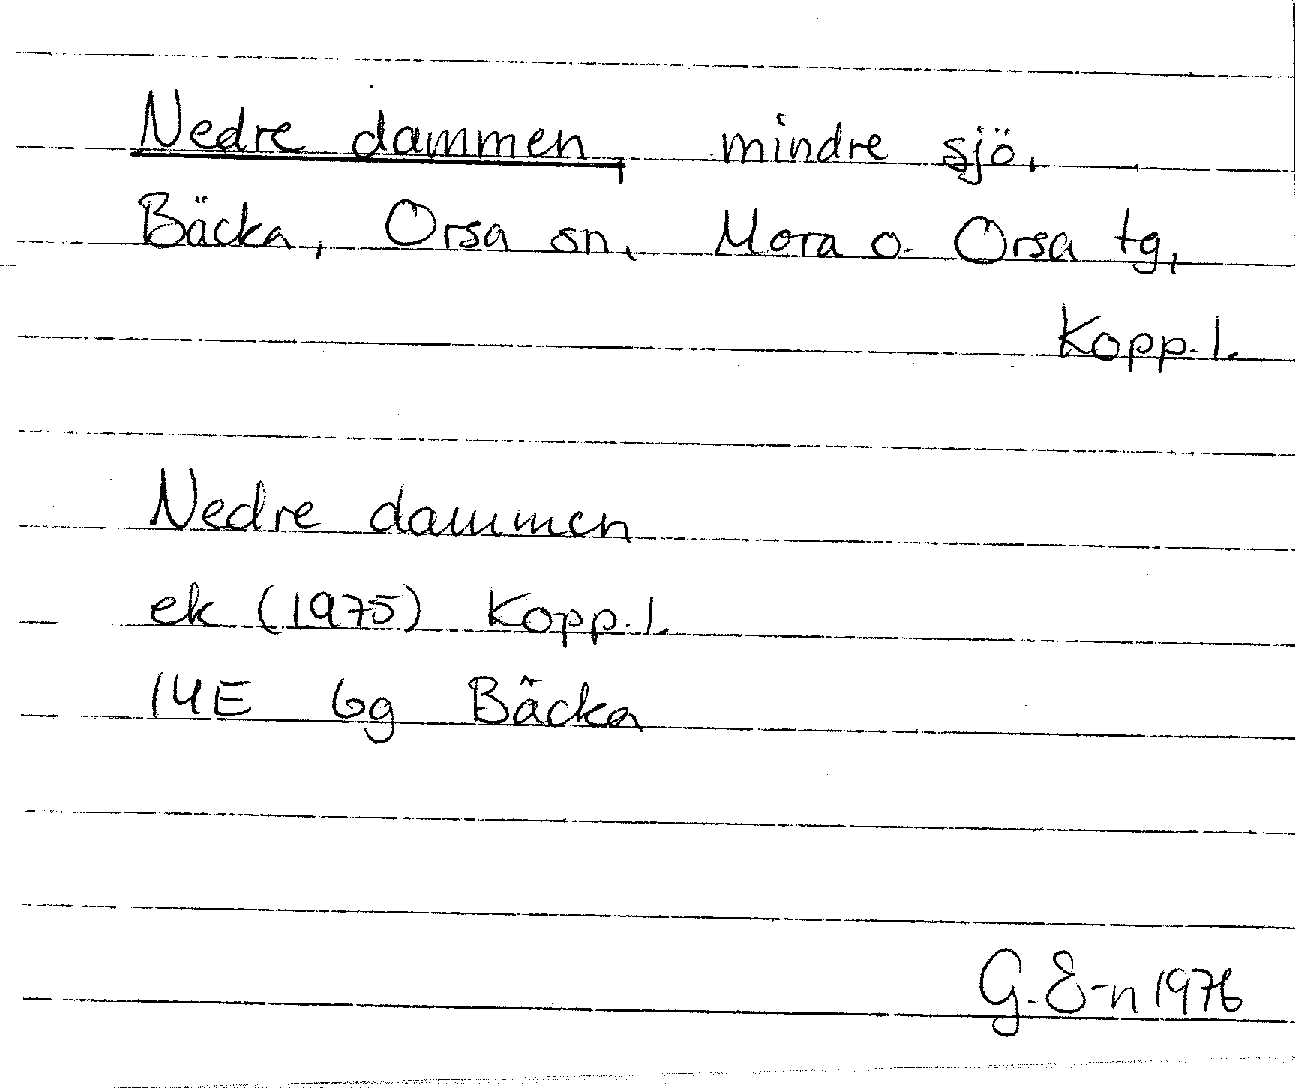 Nedre dammen, mindre sjö,
Bäcka, Orsa sn, Mora o. Orsa tg,
Kopp. l.
Nedre dammen
ek (1975) Kopp. l.
14E 6g Bäcka
G. E-n 1976